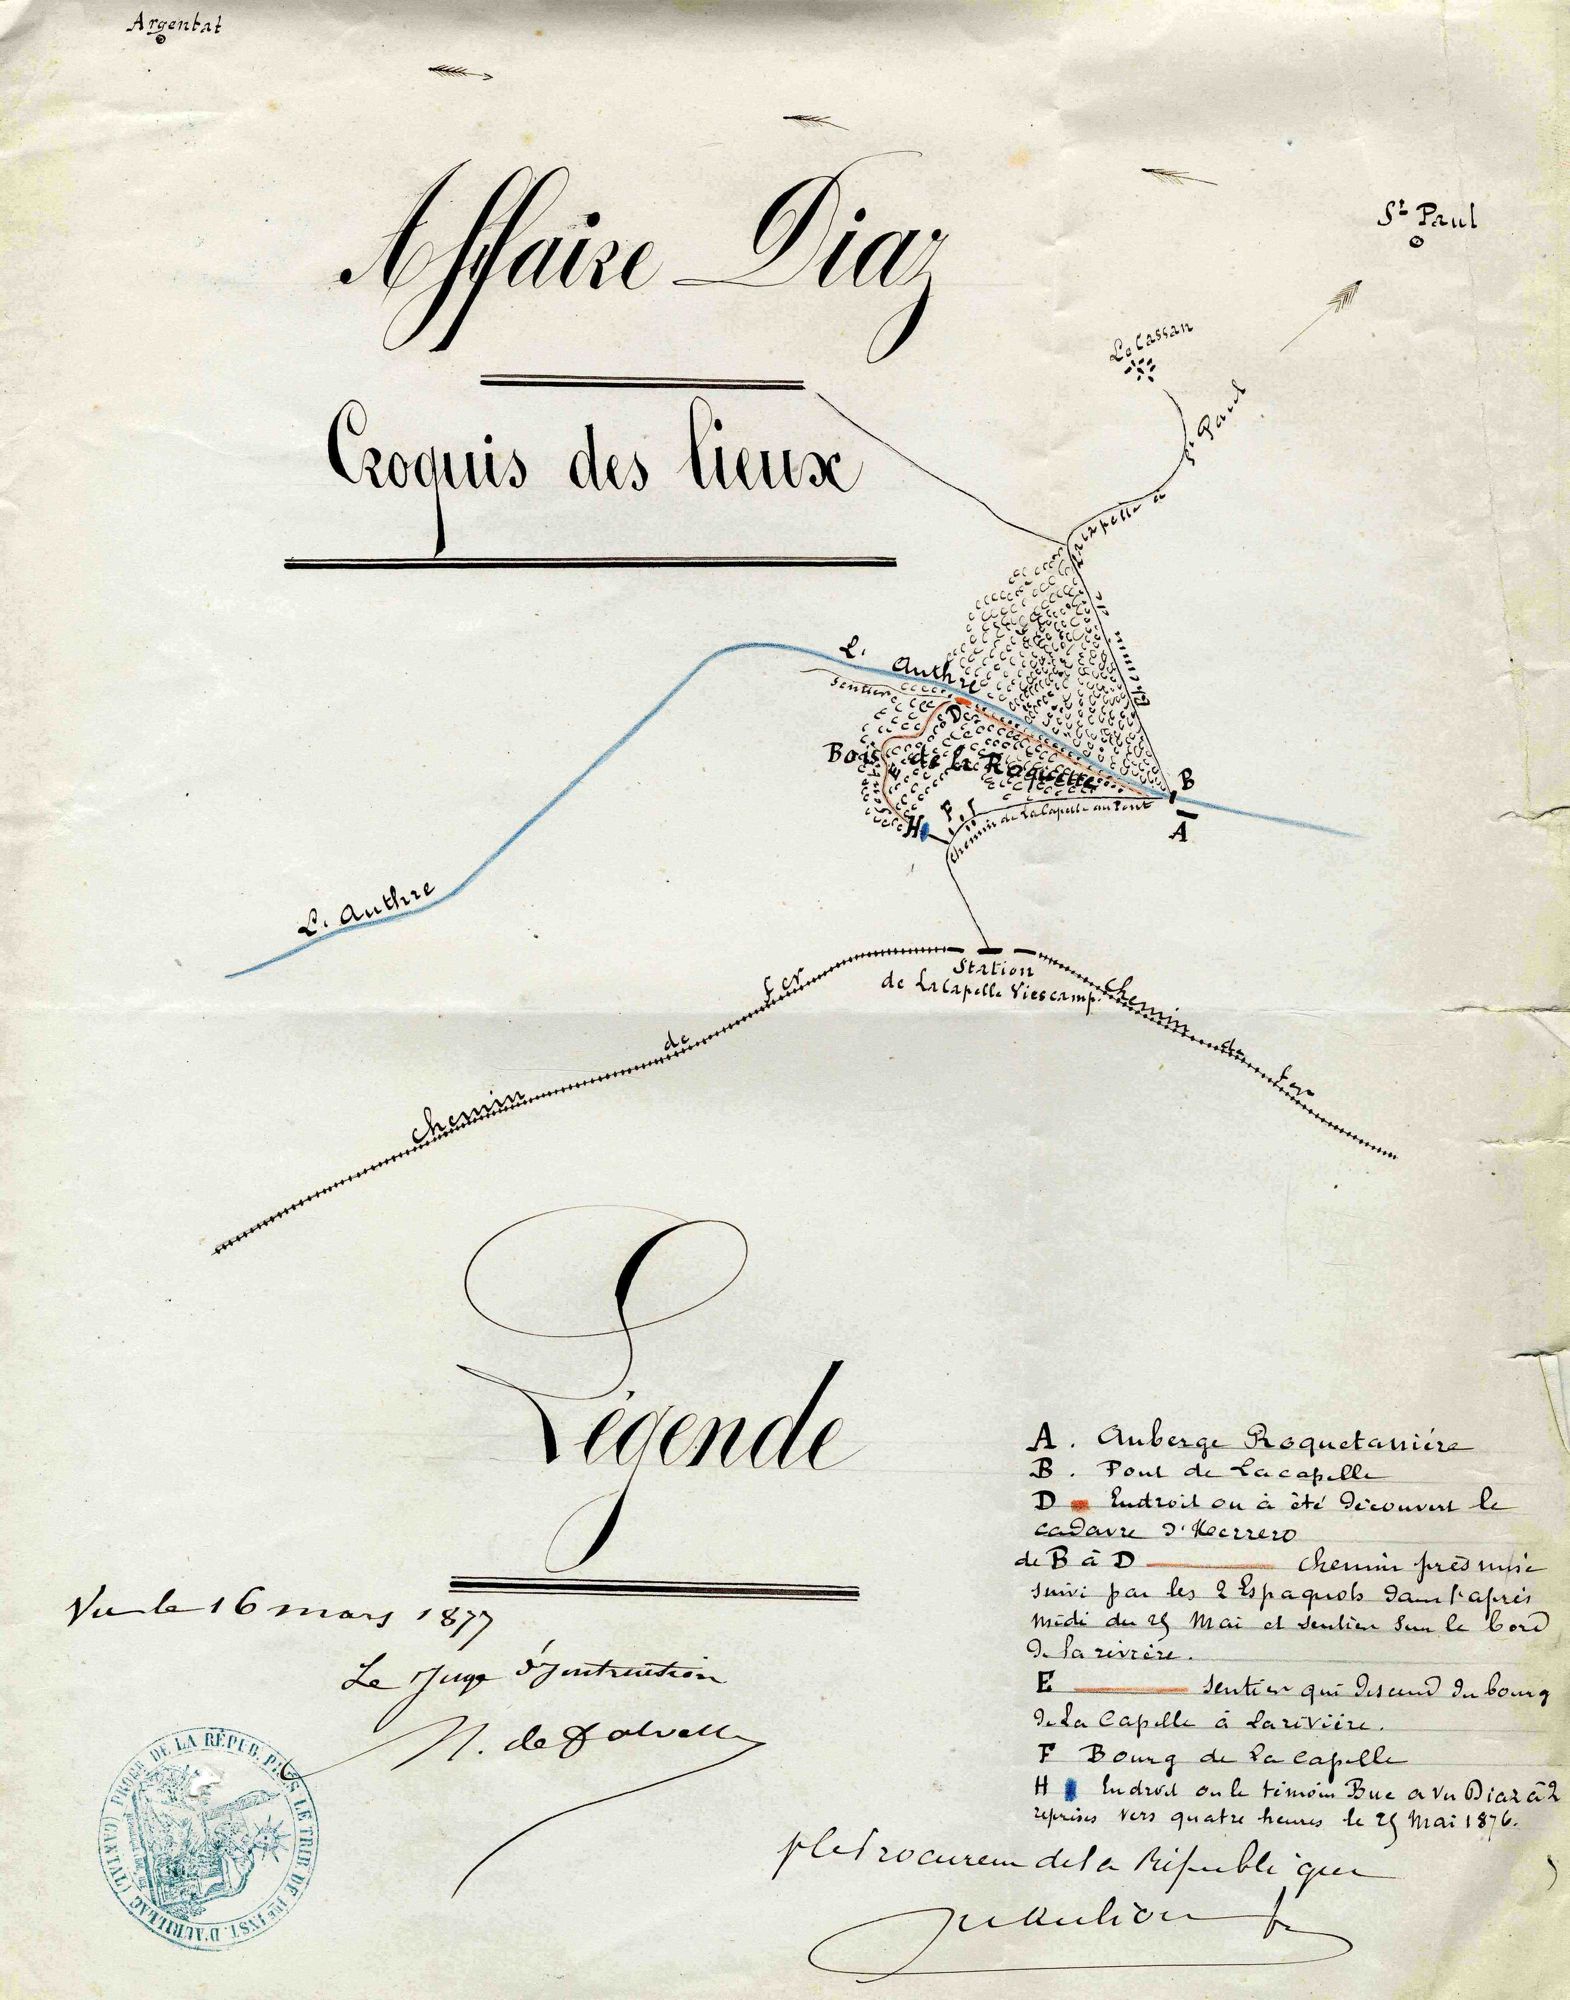 Argentat
St Paul
Affaire Diaz
Le Cassan
Croquis des lieux
Chemin de Lacapelle à St Paul
L'Authre
Sentier
D
Bois de la Roquette
E
B
F
H
Chemin de LaCapelle au Pont
A
L'Authre
Station
de LaCapelle Viescamp.
chemin de fer
chemin de fer
Légende
A. Auberge Roquetanière
B. Pont de Lacapelle
D Endroit ou à été découvert le
cadavre d'Herrero
de B à D chemin présumé
suivi par les 2 Espagnols dans l'après
midi du 25 Mai et sentier sur le bord
de la rivière.
E sentier qui descend du bourg
de La Capelle à la rivière.
F Bourg de La Capelle
H Endroit ou le témoin Buc a vu Diaz à 2
reprises vers quatre heures le 25 Mai 1876.
Vu le 16 mars 1877
Le Juge d'Instruction
N. de
pr le Procureur de la République
PROCR DE LA RÉPUB. PRÈS LE TRIB DE 1re INST. D'AURILLAC (CANTAL)